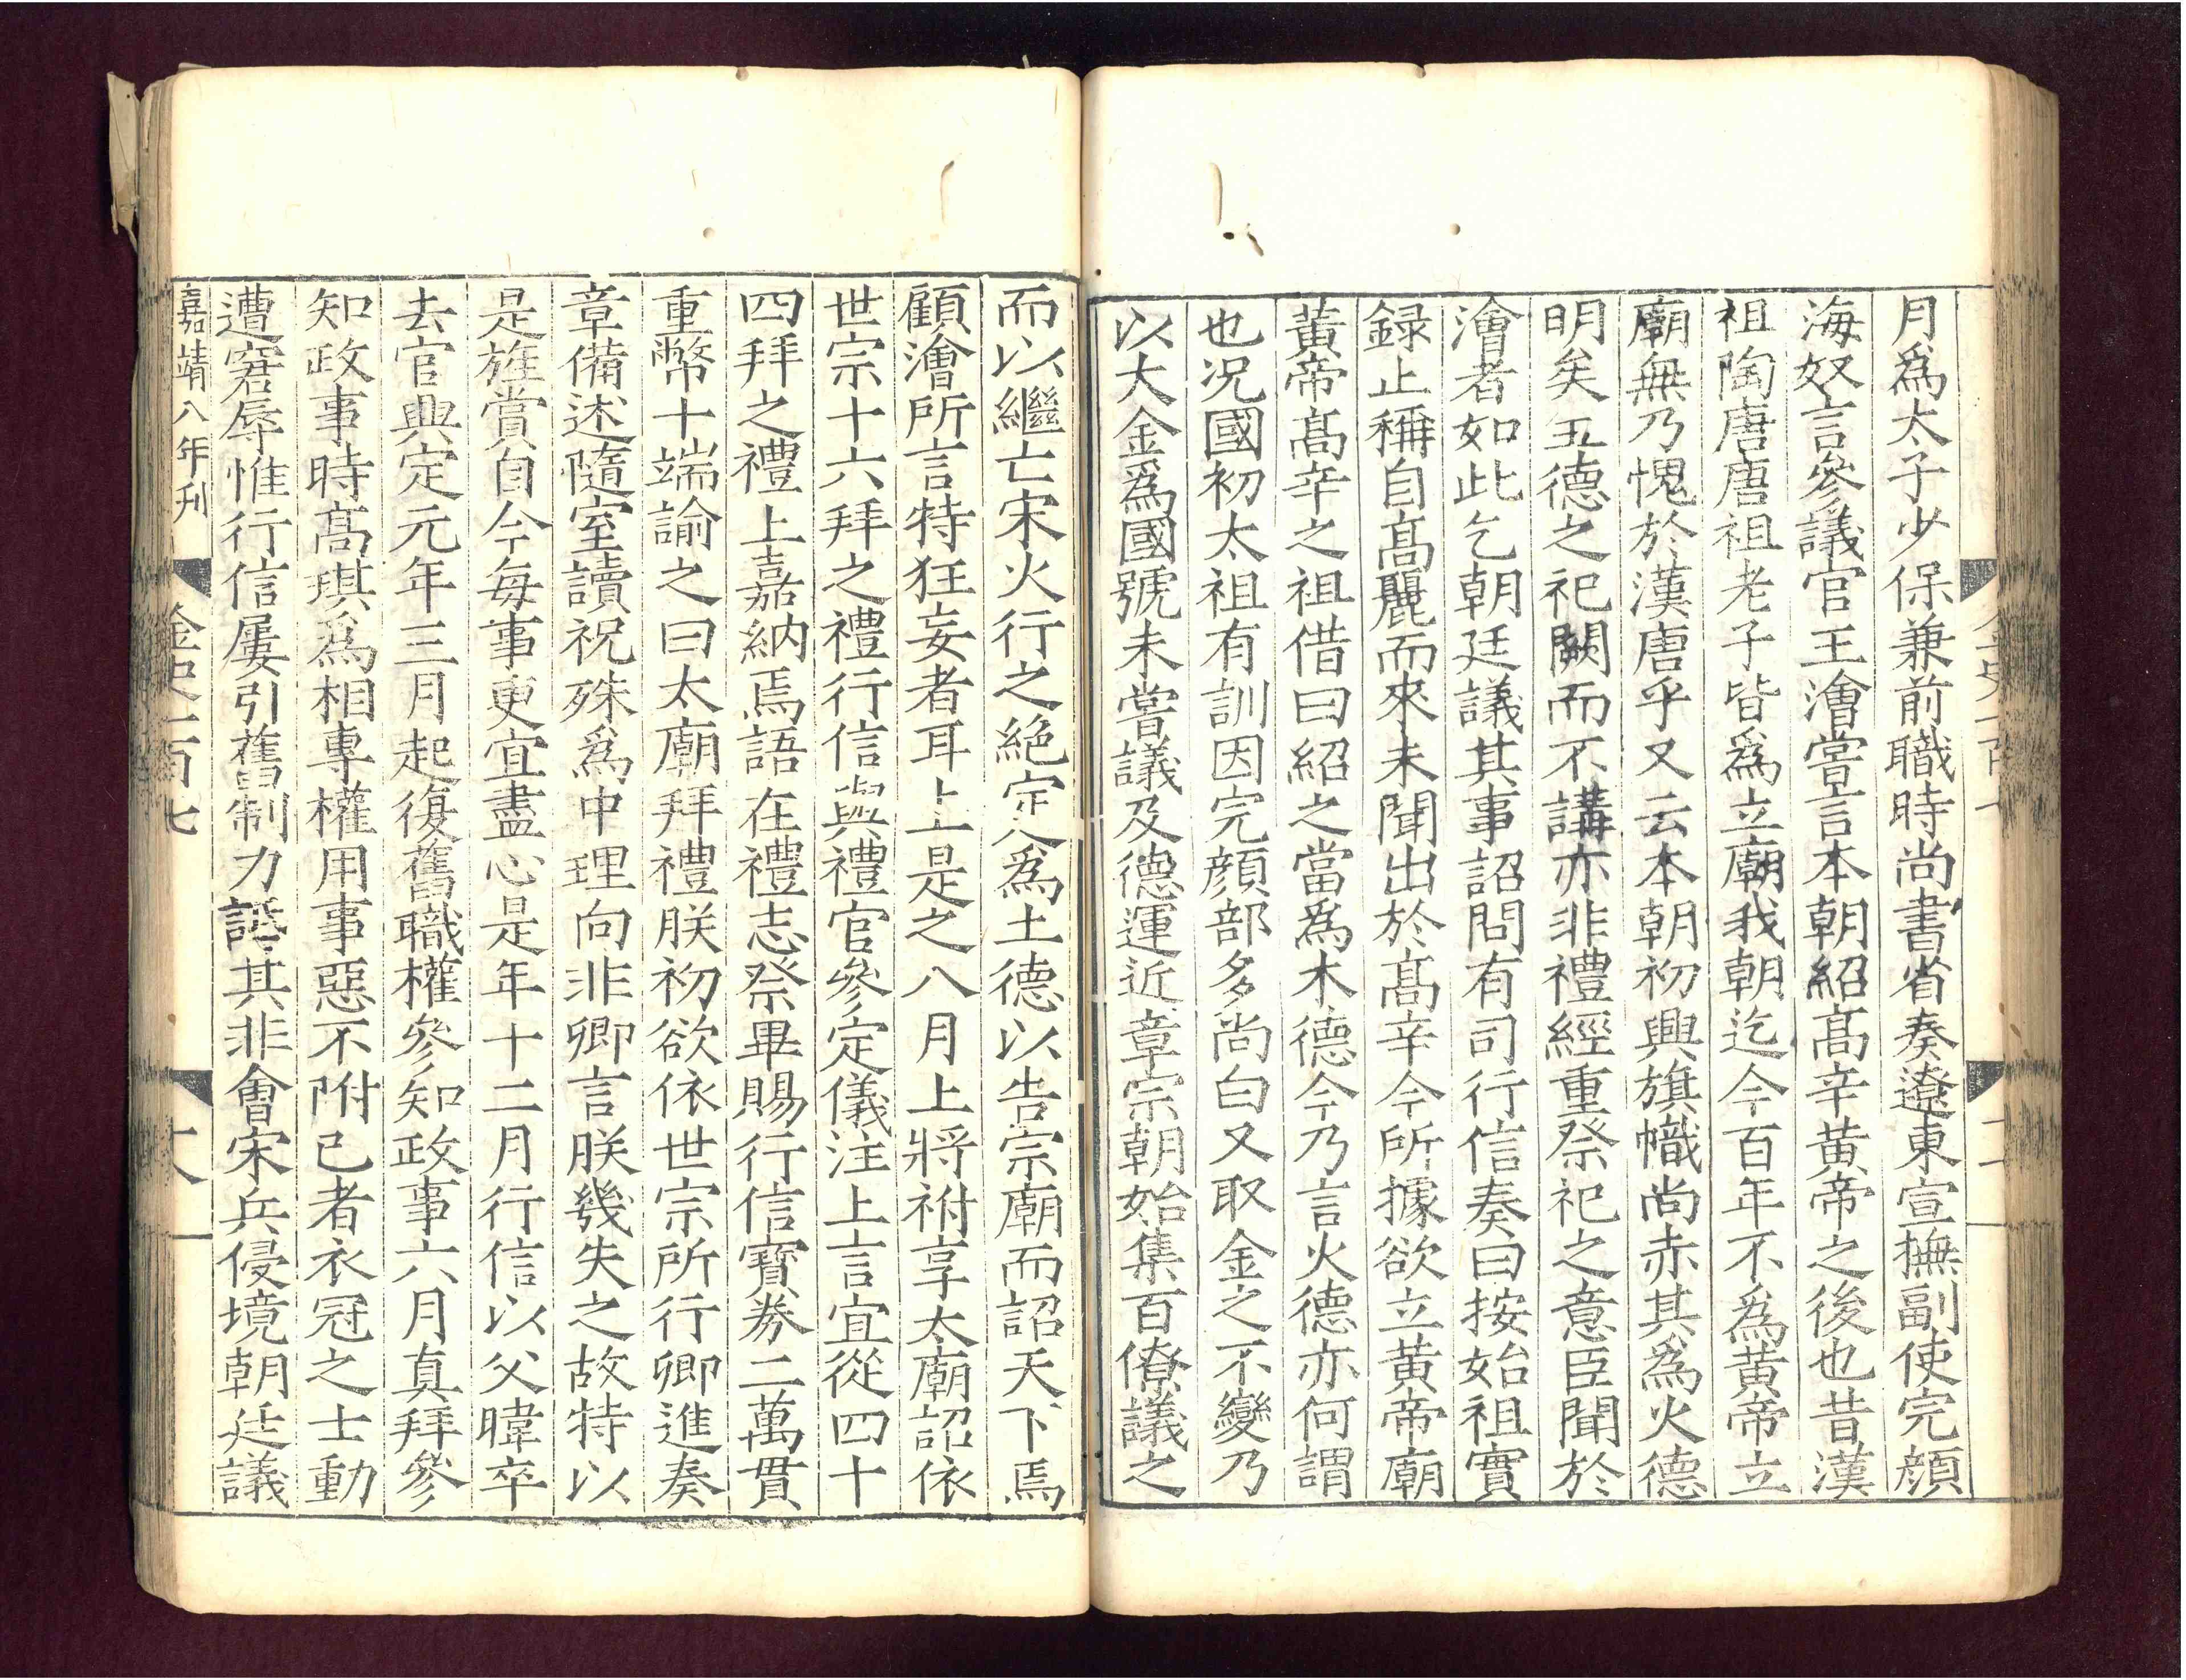 月爲太子少保兼前職時尚書省奏遼東宣撫副使完顏
海奴言參議官王澮嘗言本朝紹髙辛黃帝之後也昔漢
祖陶唐唐祖老子皆爲立廟我朝迄今百年不爲黃帝立
廟無乃愧於漢唐乎又云本朝初興旗幟尚赤其爲火德
明矣五德之祀闕而不講亦非禮經重祭祀之意臣聞於
澮者如此乞朝廷議其事詔問有司行信奏曰按始祖實
録止稱自髙麗而來未聞出於髙辛今所據欲立黃帝廟
黃帝髙辛之祖借曰紹之當爲木德今乃言火德亦何謂
也况國初太祖有訓因完顏部多尚白又取金之不變乃
以大金爲國號未嘗議及德運近章宗朝始集百僚議之
而以繼亡宋火行之絶定爲土德以告宗廟而詔天下焉
顧澮所言特狂妄者耳上是之八月上將祔享太廟詔依
世宗十六拜之禮行信與禮官參定儀注上言宜從四十
四拜之禮上嘉納焉語在禮志祭畢賜行信寳券二萬貫
重幣十端諭之曰太廟拜禮朕初欲依世宗所行卿進奏
章備述隨室讀祝殊爲中理向非卿言朕幾失之故特以
是旌賞自今每事更宜盡心是年十二月行信以父暐卒
去官興定元年三月起復舊職權參知政事六月真拜參
知政事時髙琪爲相專權用事惡不附己者衣冠之士動
遭窘辱惟行信屢引舊制力詆其非會宋兵侵境朝廷議
嘉靖八年刊
金史一百七
十八